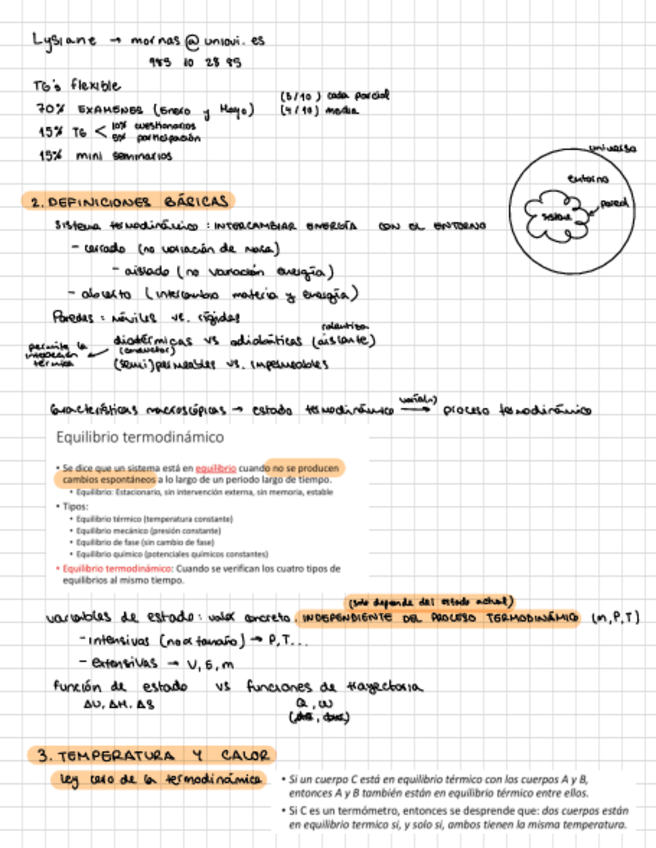 Lysiane → mornas @ uniovi. es
985 10 28 85
TG's flexible
70% EXAMENES (Enero y Mayo) (5/10) cada parcial
(4/10) media
15% TG < 10% cuestionarios
5% participación
15% mini seminarios
universo
entorno
pared
sistema
2. DEFINICIONES BÁSICAS
Sistema termodinámico : INTERCAMBIAR ENERGÍA CON EL ENTORNO
- cerrado (no variación de masa)
- aislado (no variación energía)
- abierto (intercambio materia y energía)
Paredes : móviles vs. rígidas
ralentiza
permite la interacción térmica ← diatérmicas vs adiabáticas (aislante)
(conductor)
(semi)permeables vs. impermeables
Características macroscópicas → estado termodinámico → proceso termodinámico
Equilibrio termodinámico
• Se dice que un sistema está en equilibrio cuando no se producen
cambios espontáneos a lo largo de un periodo largo de tiempo.
• Equilibrio: Estacionario, sin intervención externa, sin memoria, estable
• Tipos:
• Equilibrio térmico (temperatura constante)
• Equilibrio mecánico (presión constante)
• Equilibrio de fase (sin cambio de fase)
• Equilibrio químico (potenciales químicos constantes)
• Equilibrio termodinámico: Cuando se verifican los cuatro tipos de
equilibrios al mismo tiempo.
(solo depende del estado actual)
variables de estado : valor concreto. INDEPENDIENTE DEL PROCESO TERMODINÁMICO (m,P,T)
- intensivas (no α tamaño) → P,T...
- extensivas → V, E, m
función de estado vs funciones de trayectoria
ΔU, ΔH, ΔS Q, W
3. TEMPERATURA Y CALOR
Ley cero de la termodinámica
• Si un cuerpo C está en equilibrio térmico con los cuerpos A y B,
entonces A y B también están en equilibrio térmico entre ellos.
• Si C es un termómetro, entonces se desprende que: dos cuerpos están
en equilibrio termico si, y solo si, ambos tienen la misma temperatura.